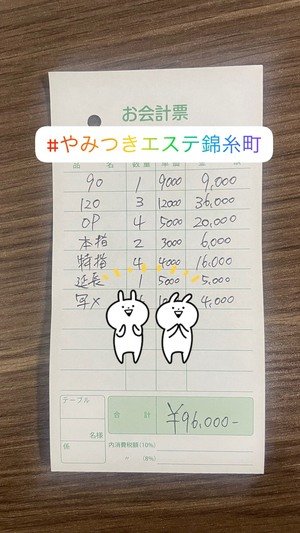 お会計票
#やみつきエステ錦糸町
品 名 数量 単価 金 額
90 1 9000 9,000
120 3 12000 36,000
OP 4 5000 20,000
本指 2 3000 6,000
特指 4 4000 16,000
延長 1 5000 5,000
写メ 4,000
テーブル
名様
係
合 計 ¥96,000-
内消費税額(10%)
〃 (8%)